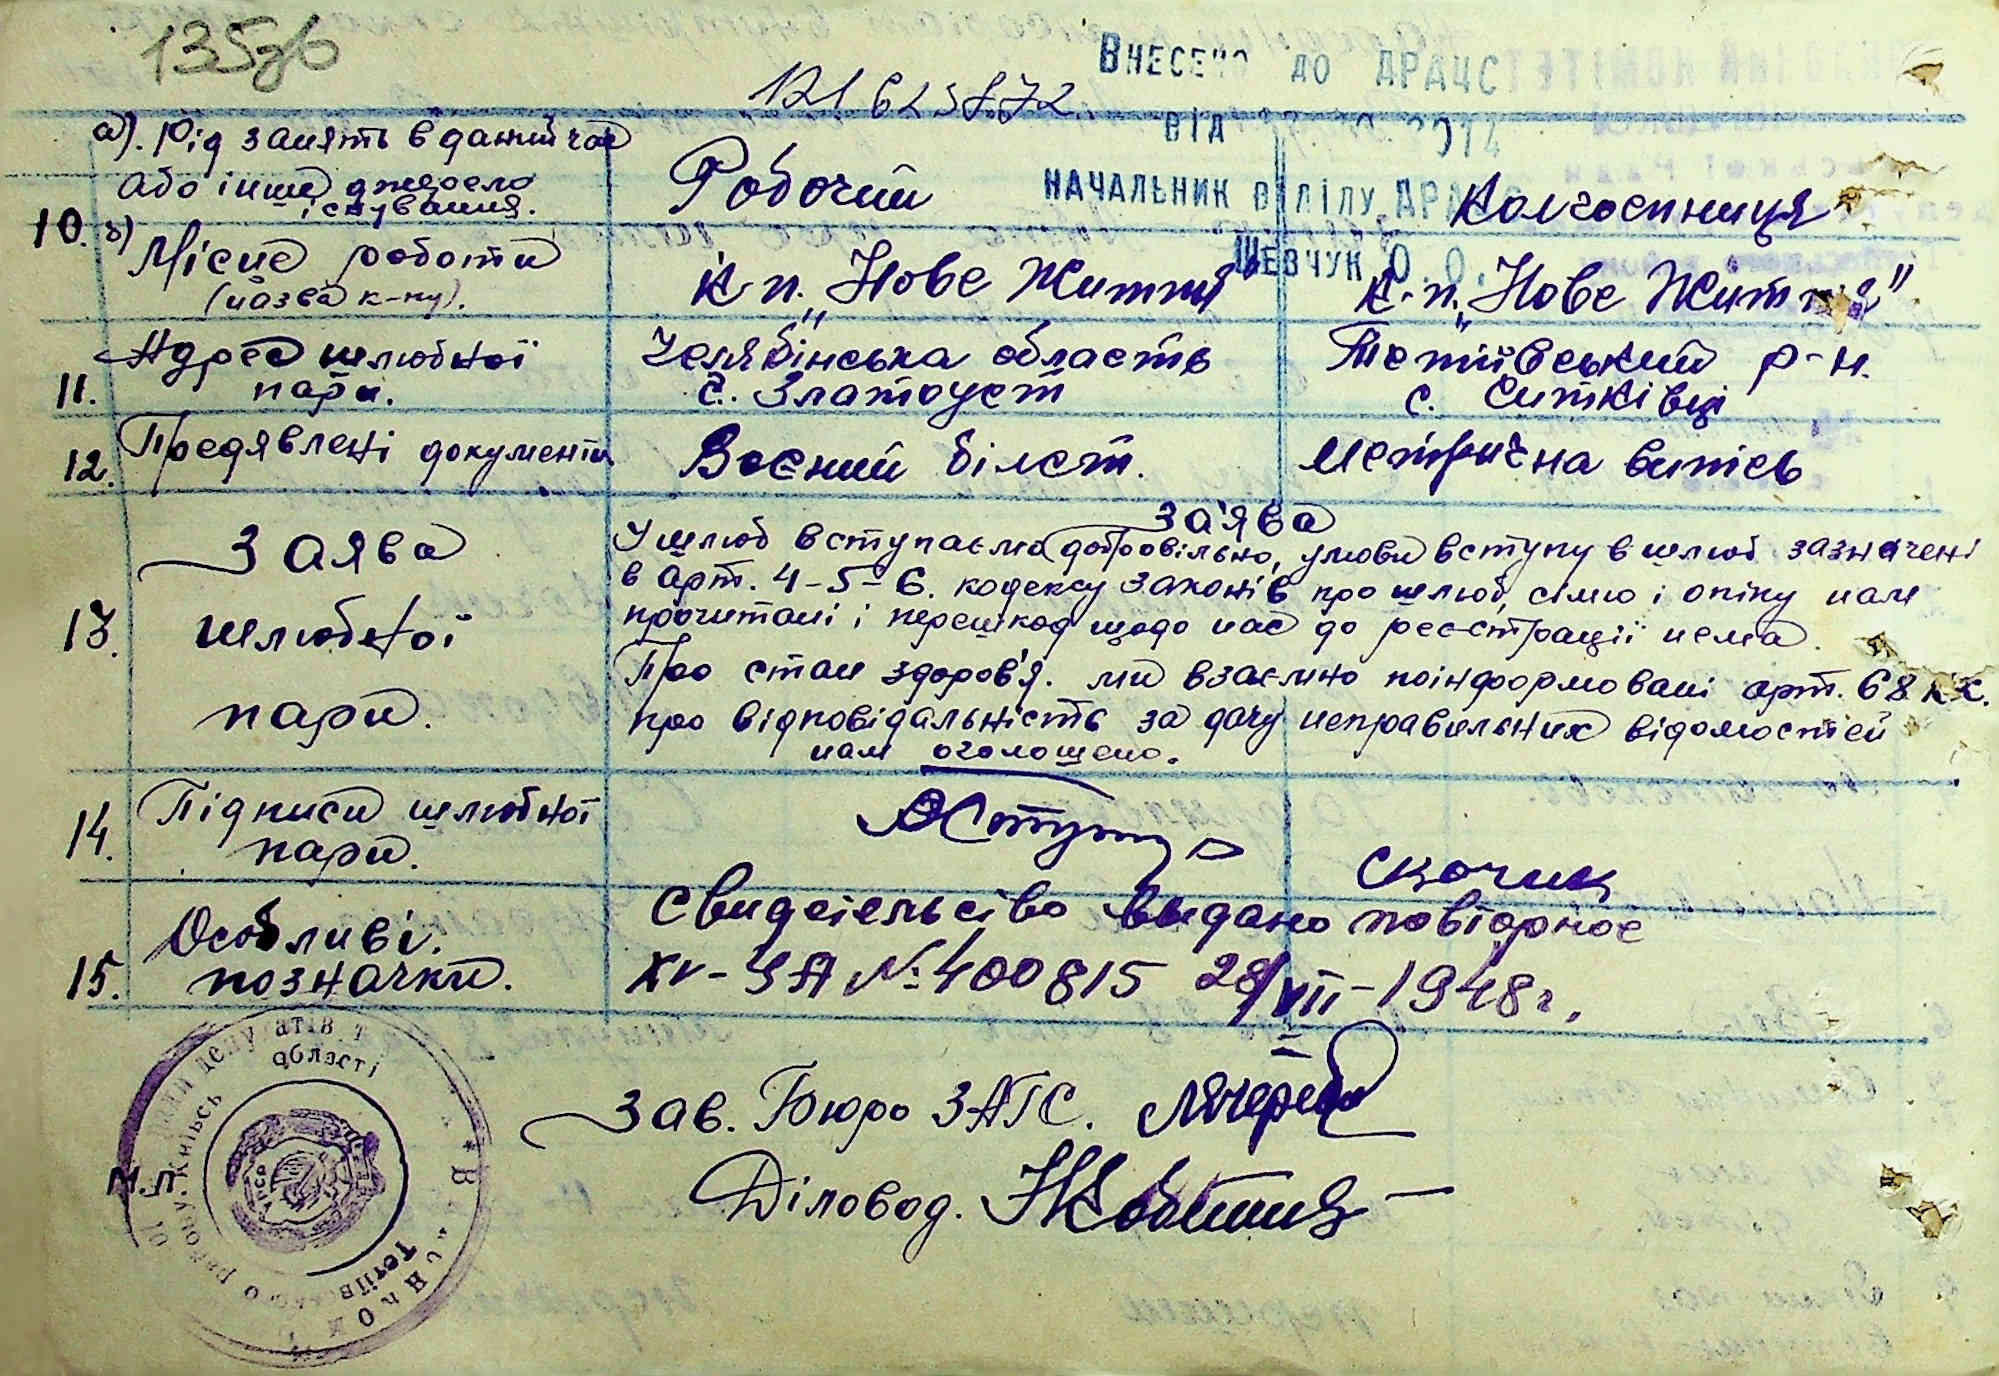 135зв
Внесено до ДРАЦС
121623872
від 2014
начальник відділу ДРАЦС
Шевчук О.О.
10. а). Рід занять в даний час
або інше джерело
існування.
Робочий
Колгоспниця
в) Місце роботи
(назва к-пу).
К-п. „Нове Життя"
К-п. „Нове Життя"
11. Адреса шлюбної
пари.
Челябінська область
с. Златоуст
Тетіївський р-н.
с. Ситківці
12. Предявлені документи
Воєний білет.
Метрична витісь
13. Заява
шлюбної
пари.
за'ява
У шлюб вступаємо добровільно, умови вступу в шлюб зазначені
в арт. 4-5-6. кодексу законів про шлюб, сімю і опіку нам
прочитані і перешкод щодо нас до реєстрації нема.
Про стан здоров'я. ми взаємно поінформовані арт. 68 КК.
про відповідальність за дачу неправильних відомостей
нам оголошено.
14. Підписи шлюбної
пари.
Скочик
15. Особливі.
позначки.
Свидєієльсіво выдано повіорноє
XV-ЗА № 400815 28/VII-1948 г.
Зав. Бюро ЗАГС.
Діловод.
М.П.
області